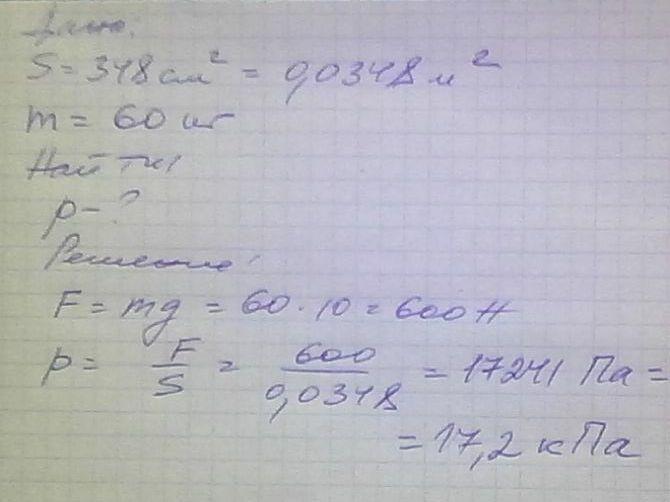 Дано:
S = 348 см² = 0,0348 м²
m = 60 кг
Найти:
p - ?
Решение:
F = mg = 60 · 10 = 600 Н
p = F/S = 600/0,0348 = 17241 Па =
= 17,2 кПа